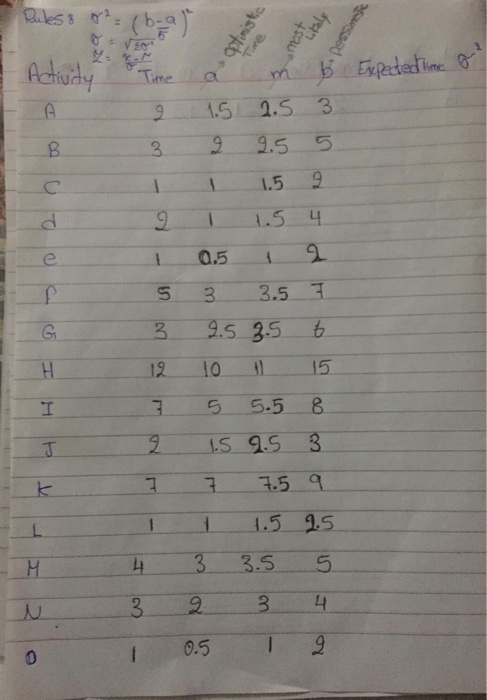 Rules: σ² = (b-a / 6)²
σ = √Σσ²
Z = x-μ / σ
optimistic Time
most likely
Pessimistic
Activity Time a m b Expected Time σ²
A 2 1.5 2.5 3
B 3 2 2.5 5
C 1 1 1.5 2
d 2 1 1.5 4
e 1 0.5 1 2
f 5 3 3.5 7
G 3 2.5 3.5 6
H 12 10 11 15
I 7 5 5.5 8
J 2 1.5 2.5 3
K 7 7 7.5 9
L 1 1 1.5 2.5
M 4 3 3.5 5
N 3 2 3 4
O 1 0.5 1 2